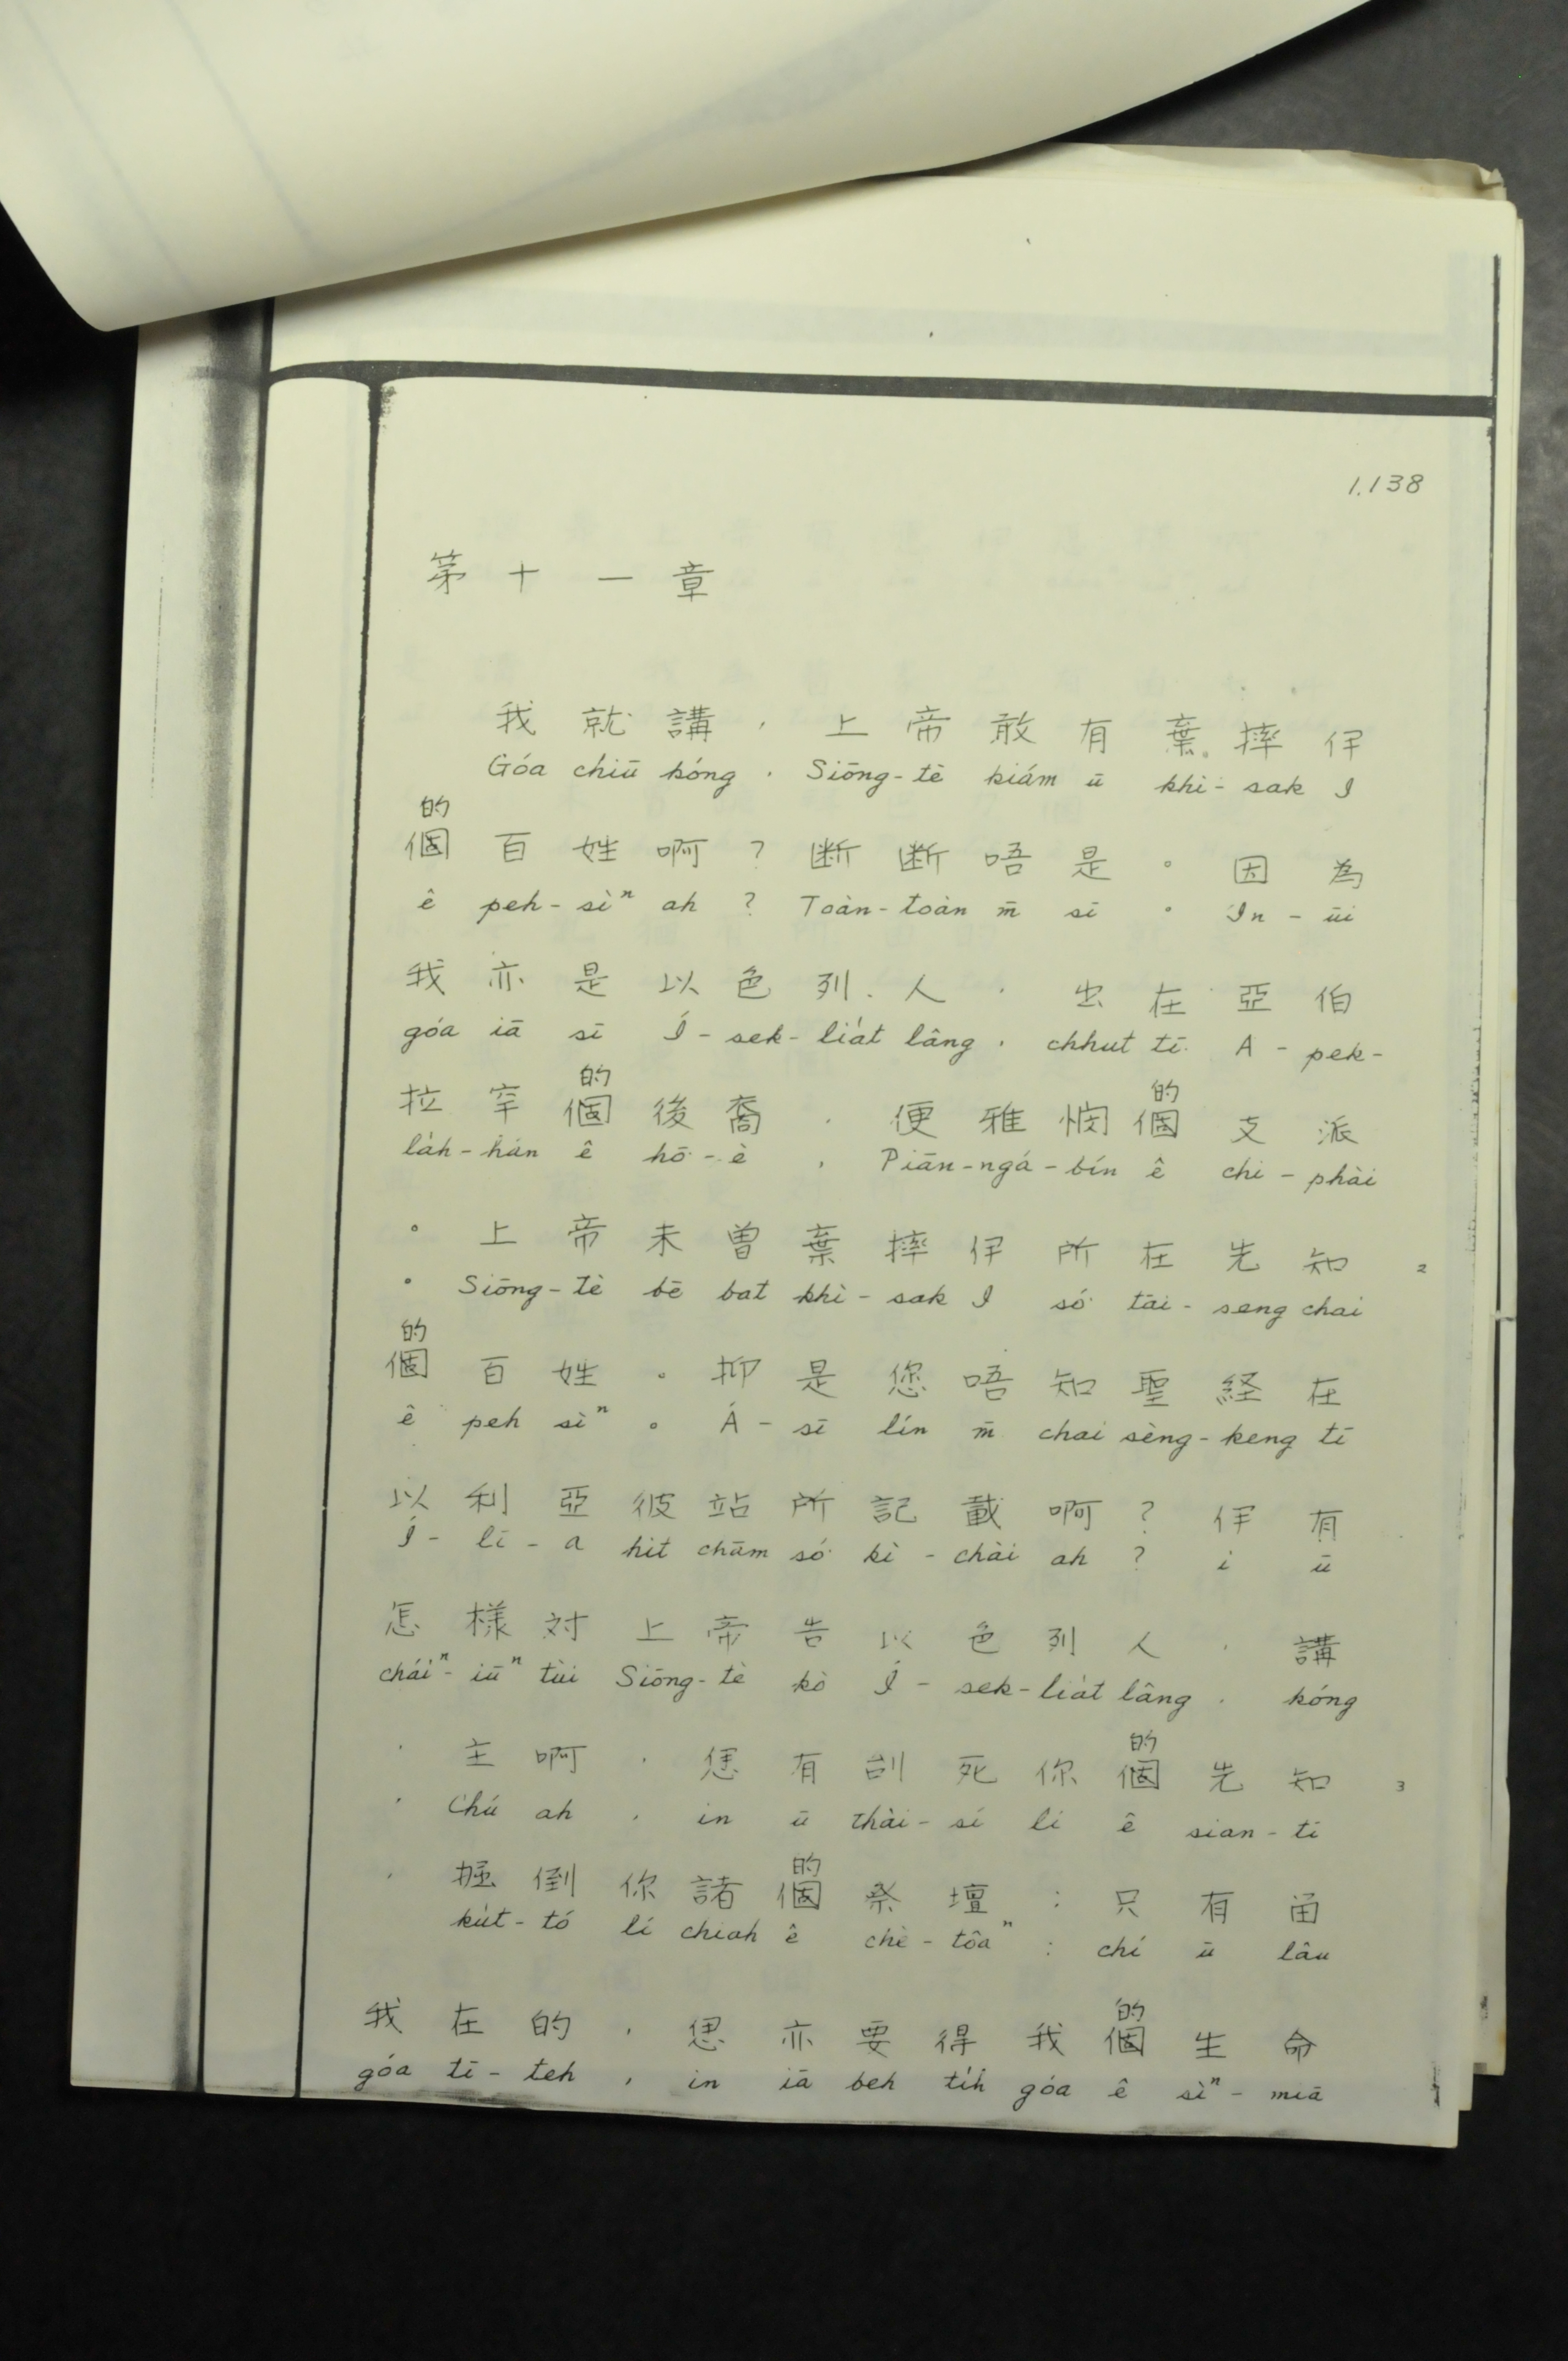 1.138
第十一章
我就講，上帝敢有棄摔伊
Góa chiū kóng, Siōng-tè kiám ū khì-sak I
的
個百姓啊？断断唔是。因為
ê peh-sìⁿ ah? Toàn-toàn m̄ sī。In-ūi
我亦是以色列人，出在亞伯
góa iā sī Í-sek-lia̍t lâng, chhut tī A-pek-
的 的
拉罕個後裔，便雅憫個支派
la̍h-hán ê hō͘-è, Piān-ngá-bín ê chi-phài
。上帝未曽棄摔伊所在先知 2
。Siōng-tè bē bat khì-sak I só͘ tāi-seng chai
的
個百姓。抑是您唔知聖経在
ê peh sìⁿ。Á-sī lín m̄ chai sèng-keng tī
以利亞彼站所記載啊？伊有
Í-lī-a hit chām só͘ kì-chài ah? i ū
怎樣対上帝告以色列人，講
cháiⁿ-iūⁿ tùi Siōng-tè kò Í-sek-lia̍t lâng, kóng
的
，主啊，恁有刣死你個先知 3
, Chú ah, in ū thâi-sí lí ê sian-ti
的
，掘倒你諸個祭壇：只有留
ku̍t-tó lí chiah ê chè-tôaⁿ: chí ū lâu
的
我在的，恁亦要得我個生命
góa tī-teh, in iā beh ti̍h góa ê sìⁿ-miā